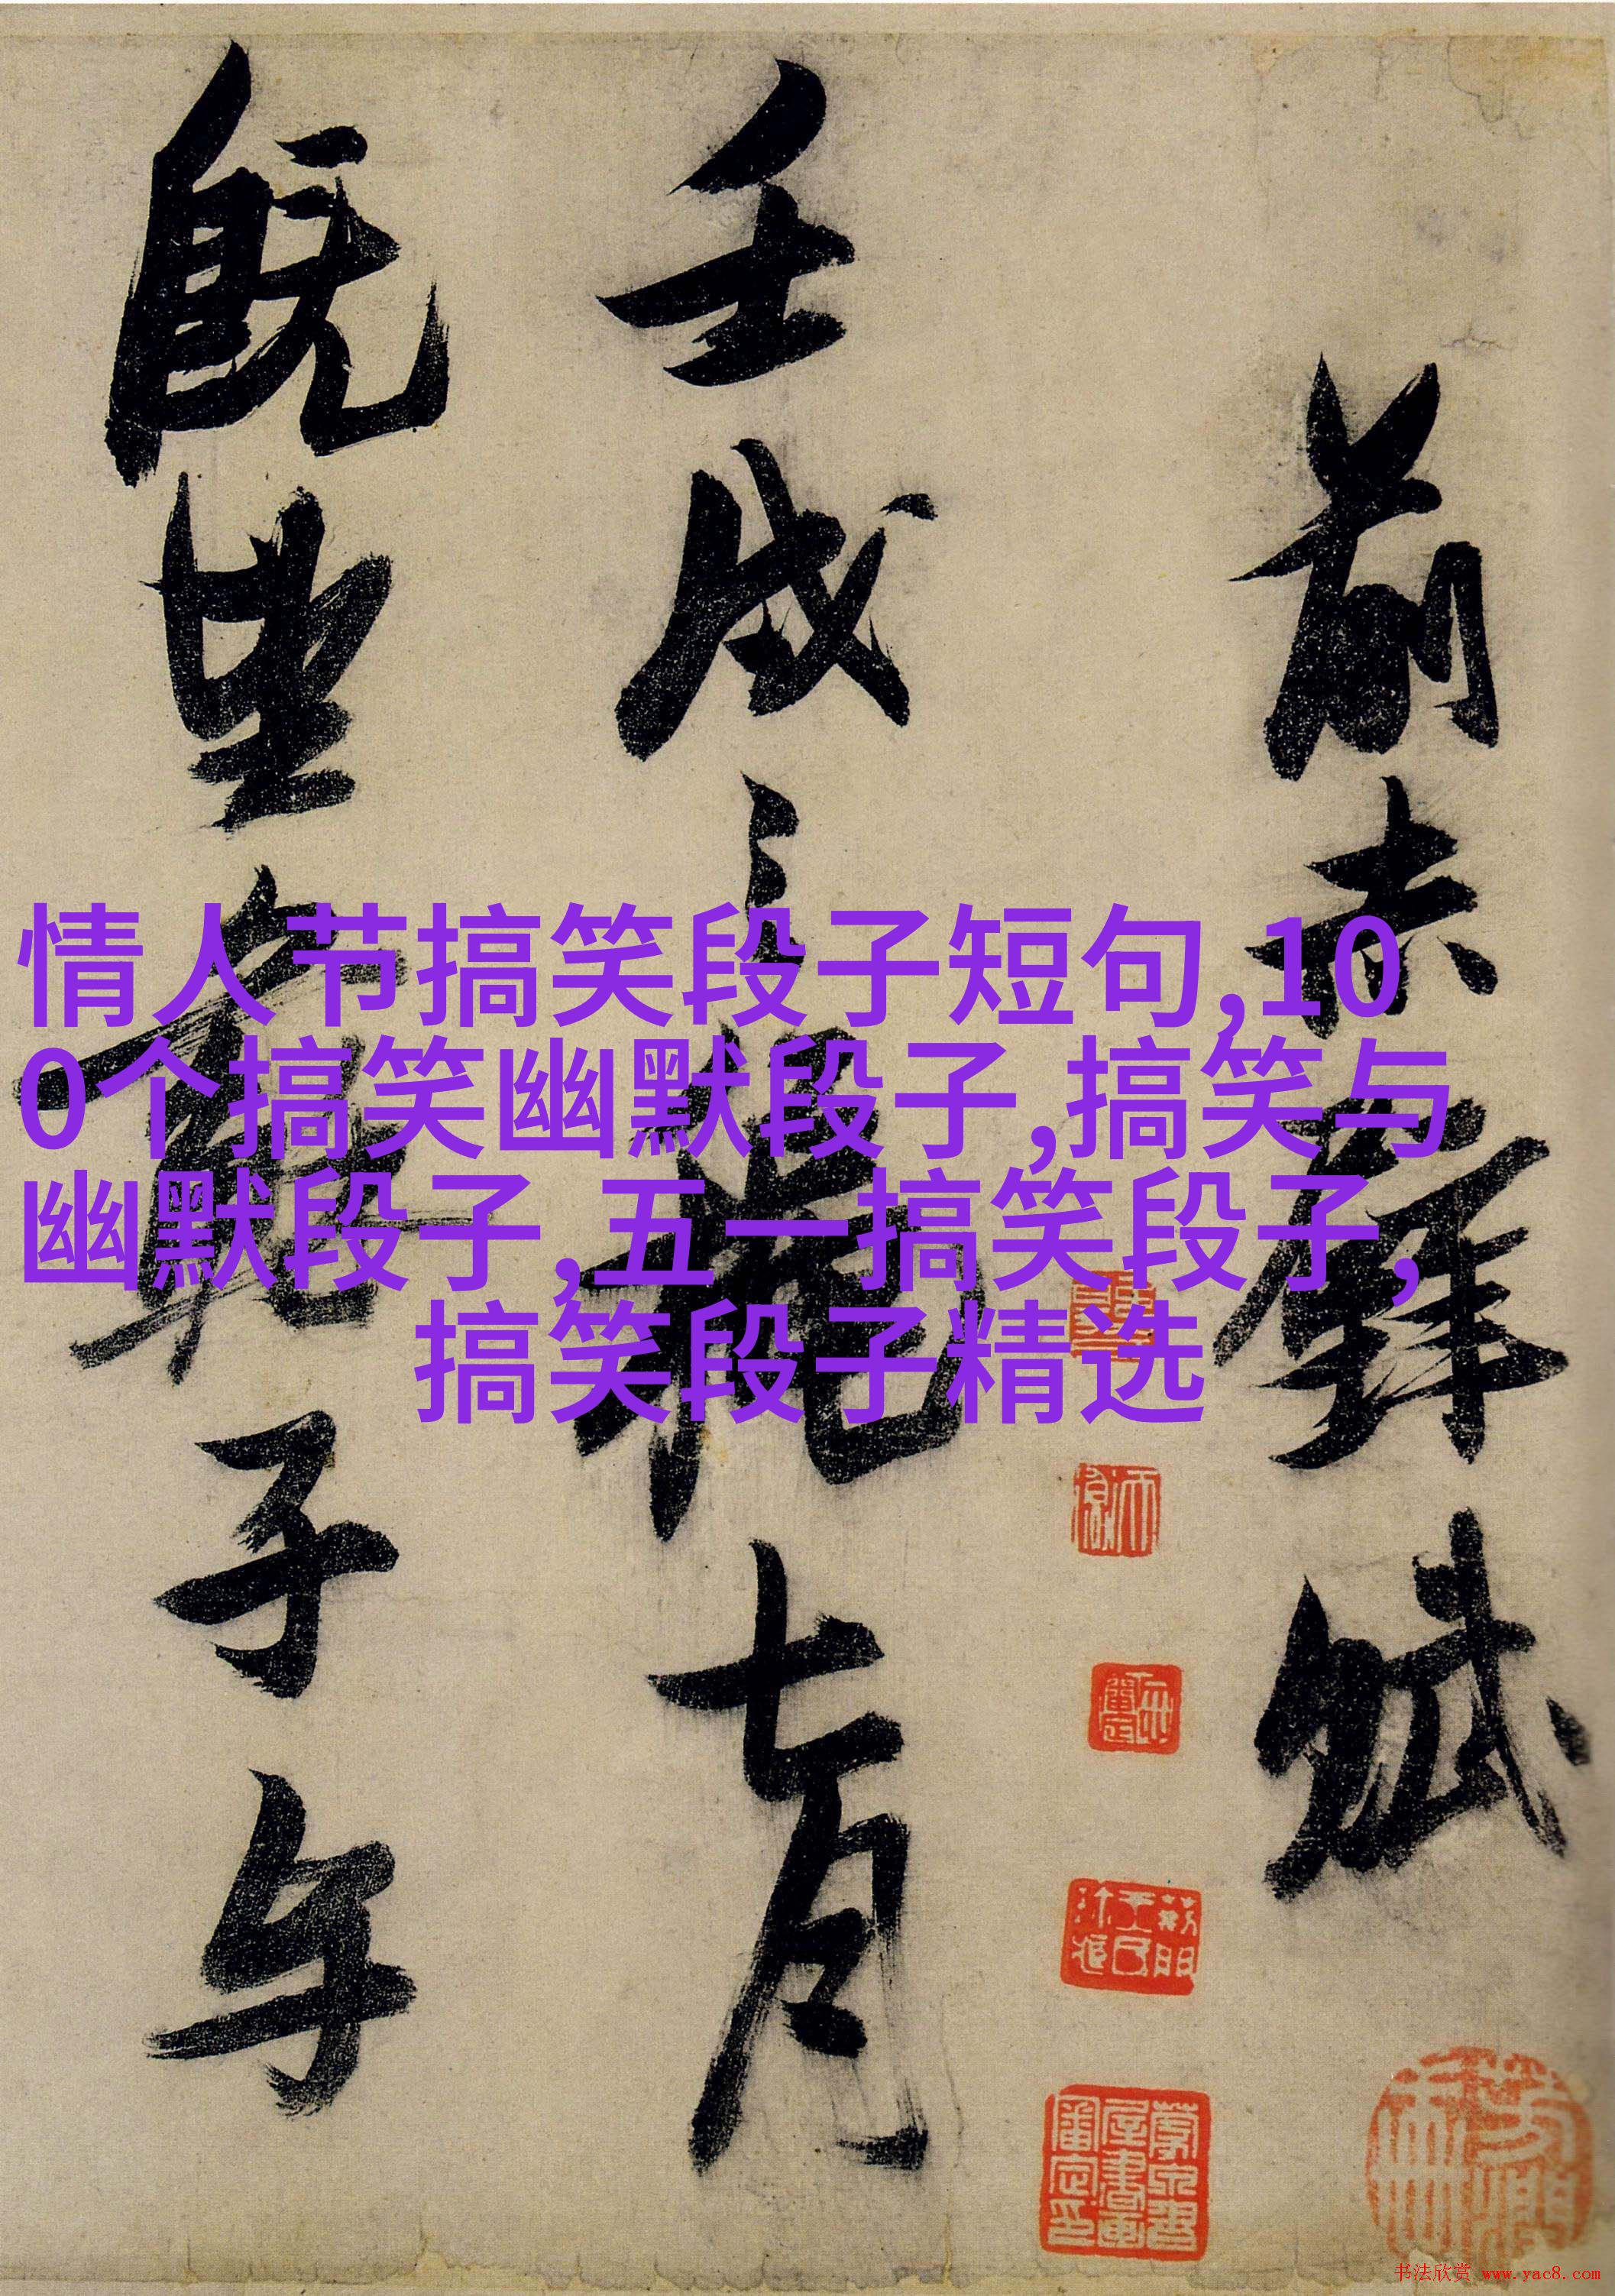 前赤壁賦
壬戌之七月
既望子与
情人节搞笑段子短句,10
0个搞笑幽默段子,搞笑与
幽默段子,五一搞笑段子,
搞笑段子精选
书法欣赏 www.yac8.com